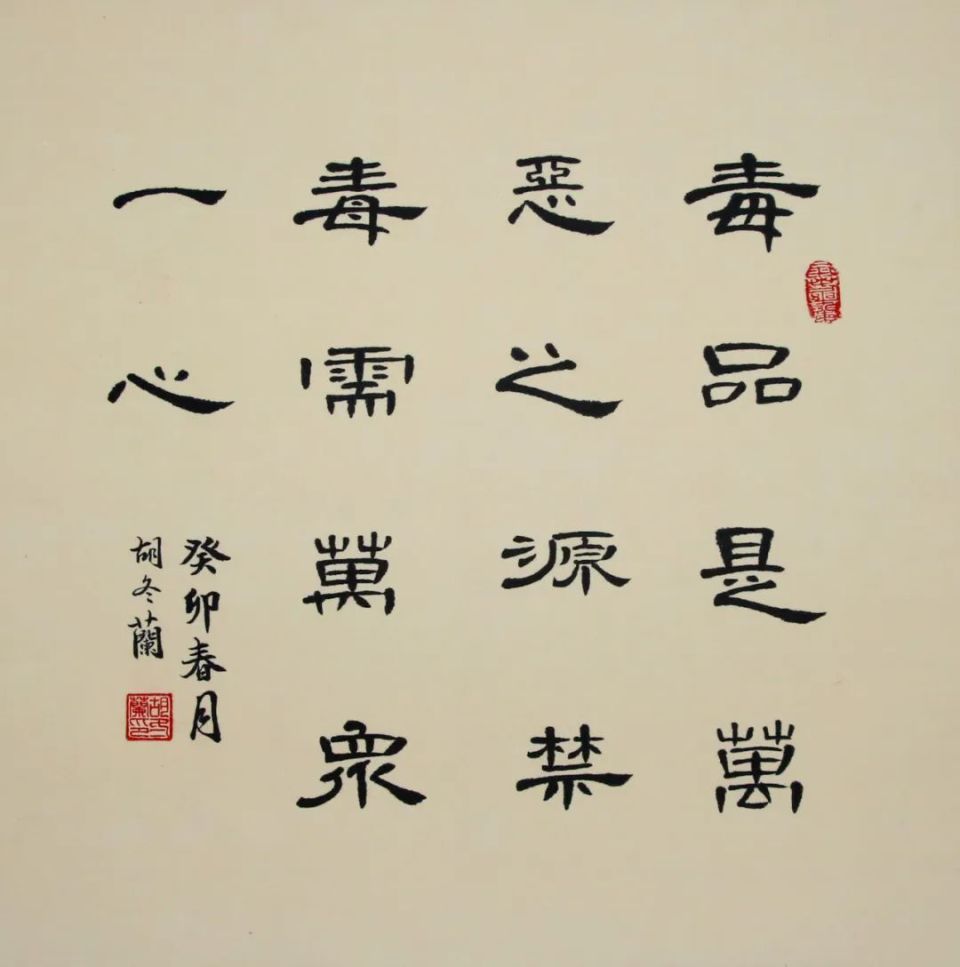 毒品是萬
惡之源禁
毒需萬眾
一心
癸卯春月
胡冬蘭